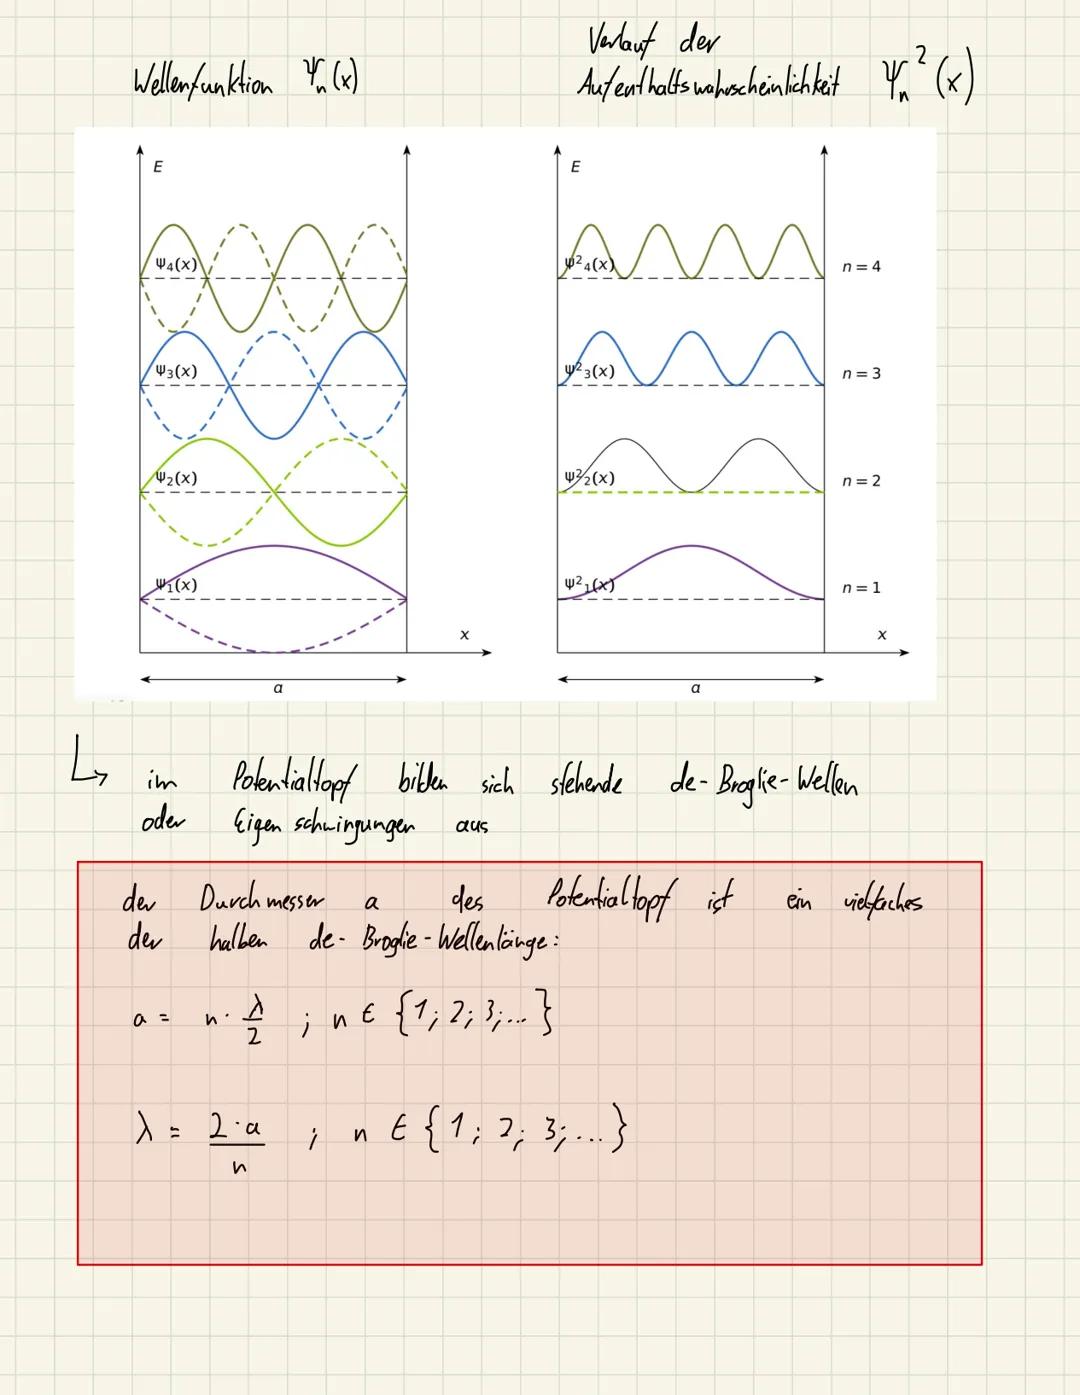 Wellenfunktion Ψₙ(x)
Verlauf der
Aufenthaltswahrscheinlichkeit Ψₙ²(x)
E
ψ₄(x)
ψ₃(x)
ψ₂(x)
ψ₁(x)
x
a
E
ψ²₄(x) n = 4
ψ²₃(x) n = 3
ψ²₂(x) n = 2
ψ²₁(x) n = 1
x
a
↳ im Potentialtopf bilden sich stehende de-Broglie-Wellen
oder Eigenschwingungen aus
der Durchmesser a des Potentialtopf ist ein vielfaches
der halben de-Broglie-Wellenlänge:
a = n · λ/2 ; n ∈ {1; 2; 3;...}
λ = 2·a/n ; n ∈ {1; 2; 3;...}